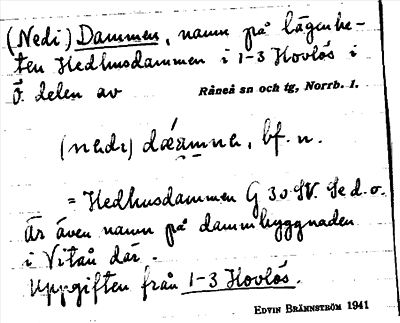 (Nedi) Dammen, namn på lägenhe-
ten Hedhusdammen i 1-3 Hovlös i
ö. delen av Råneå sn och tg, Norrb. l.
(nedı) dǽamne, bf. n.
= Hedhusdammen G 30 SV. Se d. o.
Är även namn på dammbyggnaden
i Vitån där.
Uppgiften från 1-3 Hovlös.
EDVIN BRÄNNSTRÖM 1941